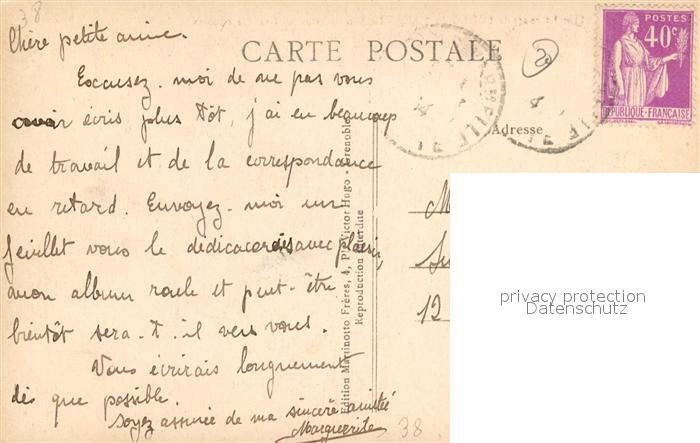 38
Chère petite amie.
CARTE POSTALE
POSTES
40c
REPUBLIQUE-FRANÇAISE
Adresse
Excusez-moi de ne pas vous
avoir écris plus tôt, j'ai eu beaucoup
de travail et de la correspondance
en retard. Envoyez-moi un
feuillet vous le dédicacerais avec plaisir,
mon album roule et peut-être
bientôt sera-t-il vers vous.
Vous écrirais longuement
dès que possible.
Soyez assurée de ma sincère amitié
Marguerite
38
Edition Martinotto Frères, 4, Pl. Victor Hugo - Grenoble
Reproduction interdite
M
12
privacy protection
Datenschutz